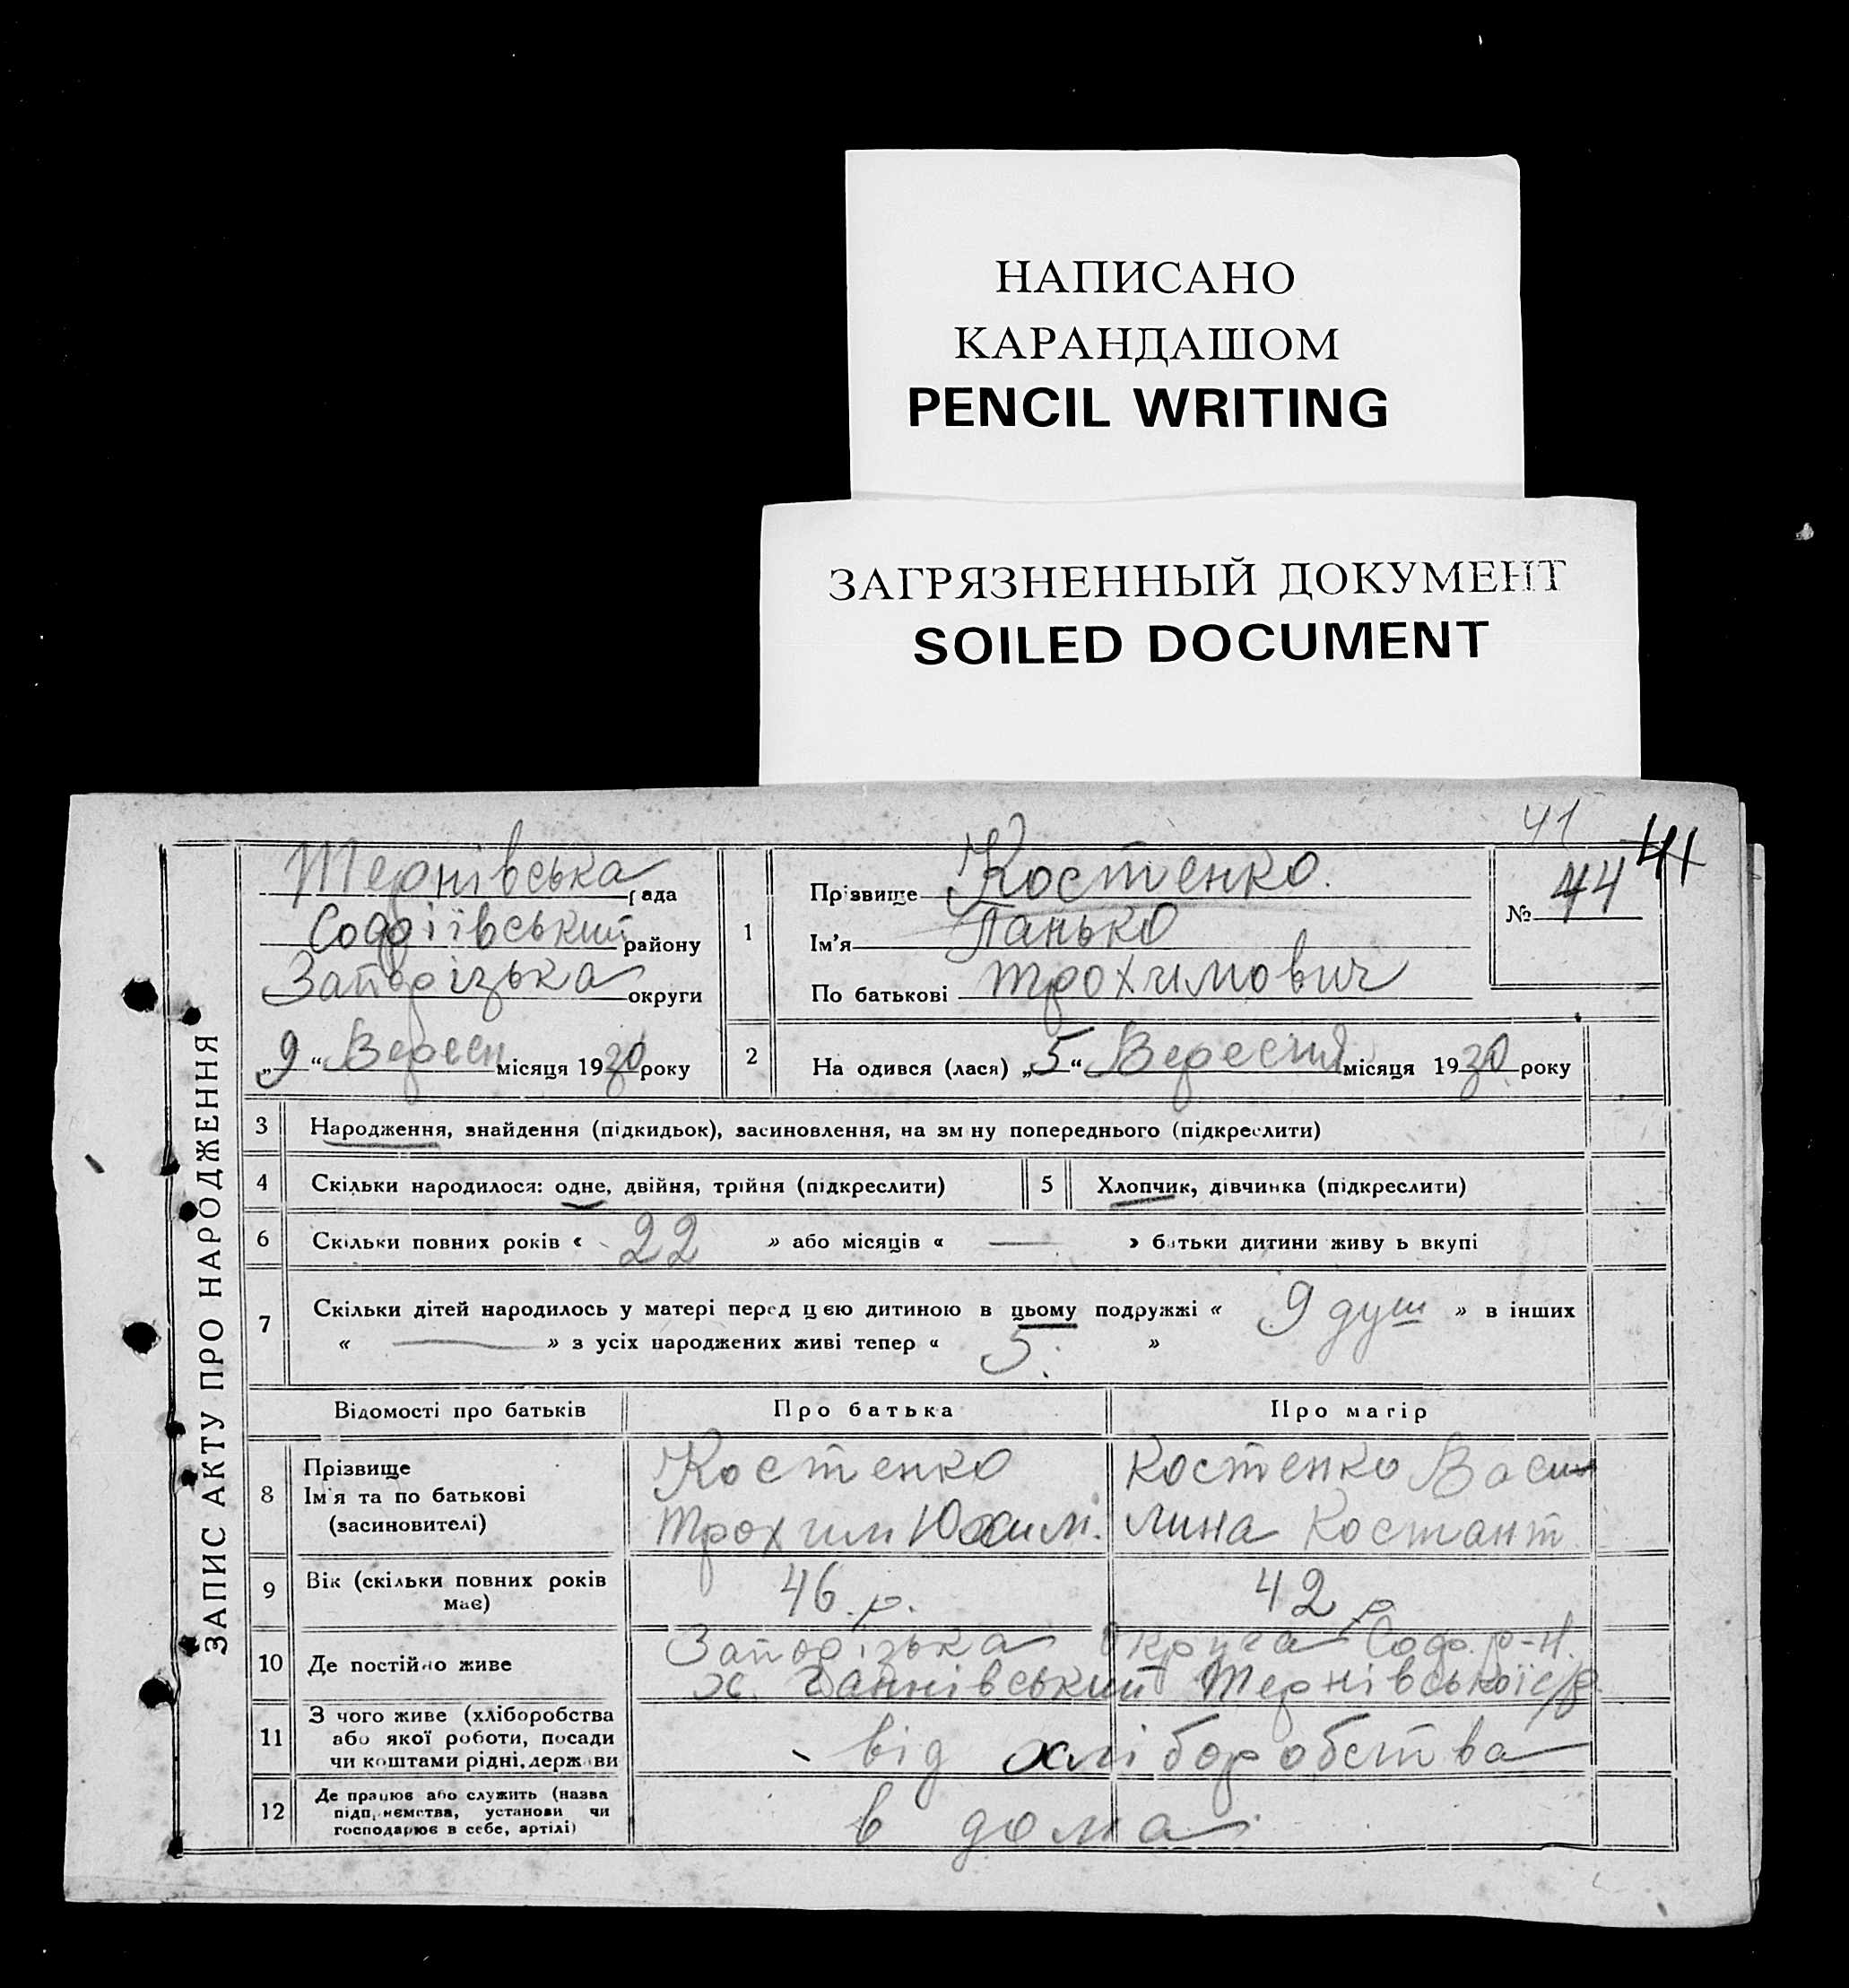 НАПИСАНО
КАРАНДАШОМ
PENCIL WRITING
ЗАГРЯЗНЕННЫЙ ДОКУМЕНТ
SOILED DOCUMENT
41
44
ЗАПИС АКТУ ПРО НАРОДЖЕННЯ
Тернівська рада
Софіївський району
Запорізька округи
„9“ Вересн місяця 1930 року
1
Прізвище Костенко
Ім'я Панько
По батькові Трохимович
№ 44
2 На одився (лася) „5“ Вересня місяця 1930 року
3 Народження, знайдення (підкидьок), засиновлення, на зм ну попереднього (підкреслити)
4 Скільки народилося: одне, двійня, трійня (підкреслити) 5 Хлопчик, дівчинка (підкреслити)
6 Скільки повних років « 22 » або місяців « — » батьки дитини живу ь вкупі
7 Скільки дітей народилось у матері перед цією дитиною в цьому подружжі « 9 душ » в інших
« — » з усіх народжених живі тепер « 5. »
Відомості про батьків Про батька Про матір
8 Прізвище Ім'я та по батькові (засиновителі)
Костенко
Трохим Юхим.
Костенко Васи
лина Костант
9 Вік (скільки повних років має) 46 р. 42 р
10 Де постійно живе Запорізька Округа Соф. р-н.
х. Ганнівський Тернівської с/р.
11 З чого живе (хліборобства
або якої роботи, посади
чи коштами рідні, держави
від хліборобства
12 Де працює або служить (назва
підприємства, установи чи
господарює в себе, артілі)
в дома